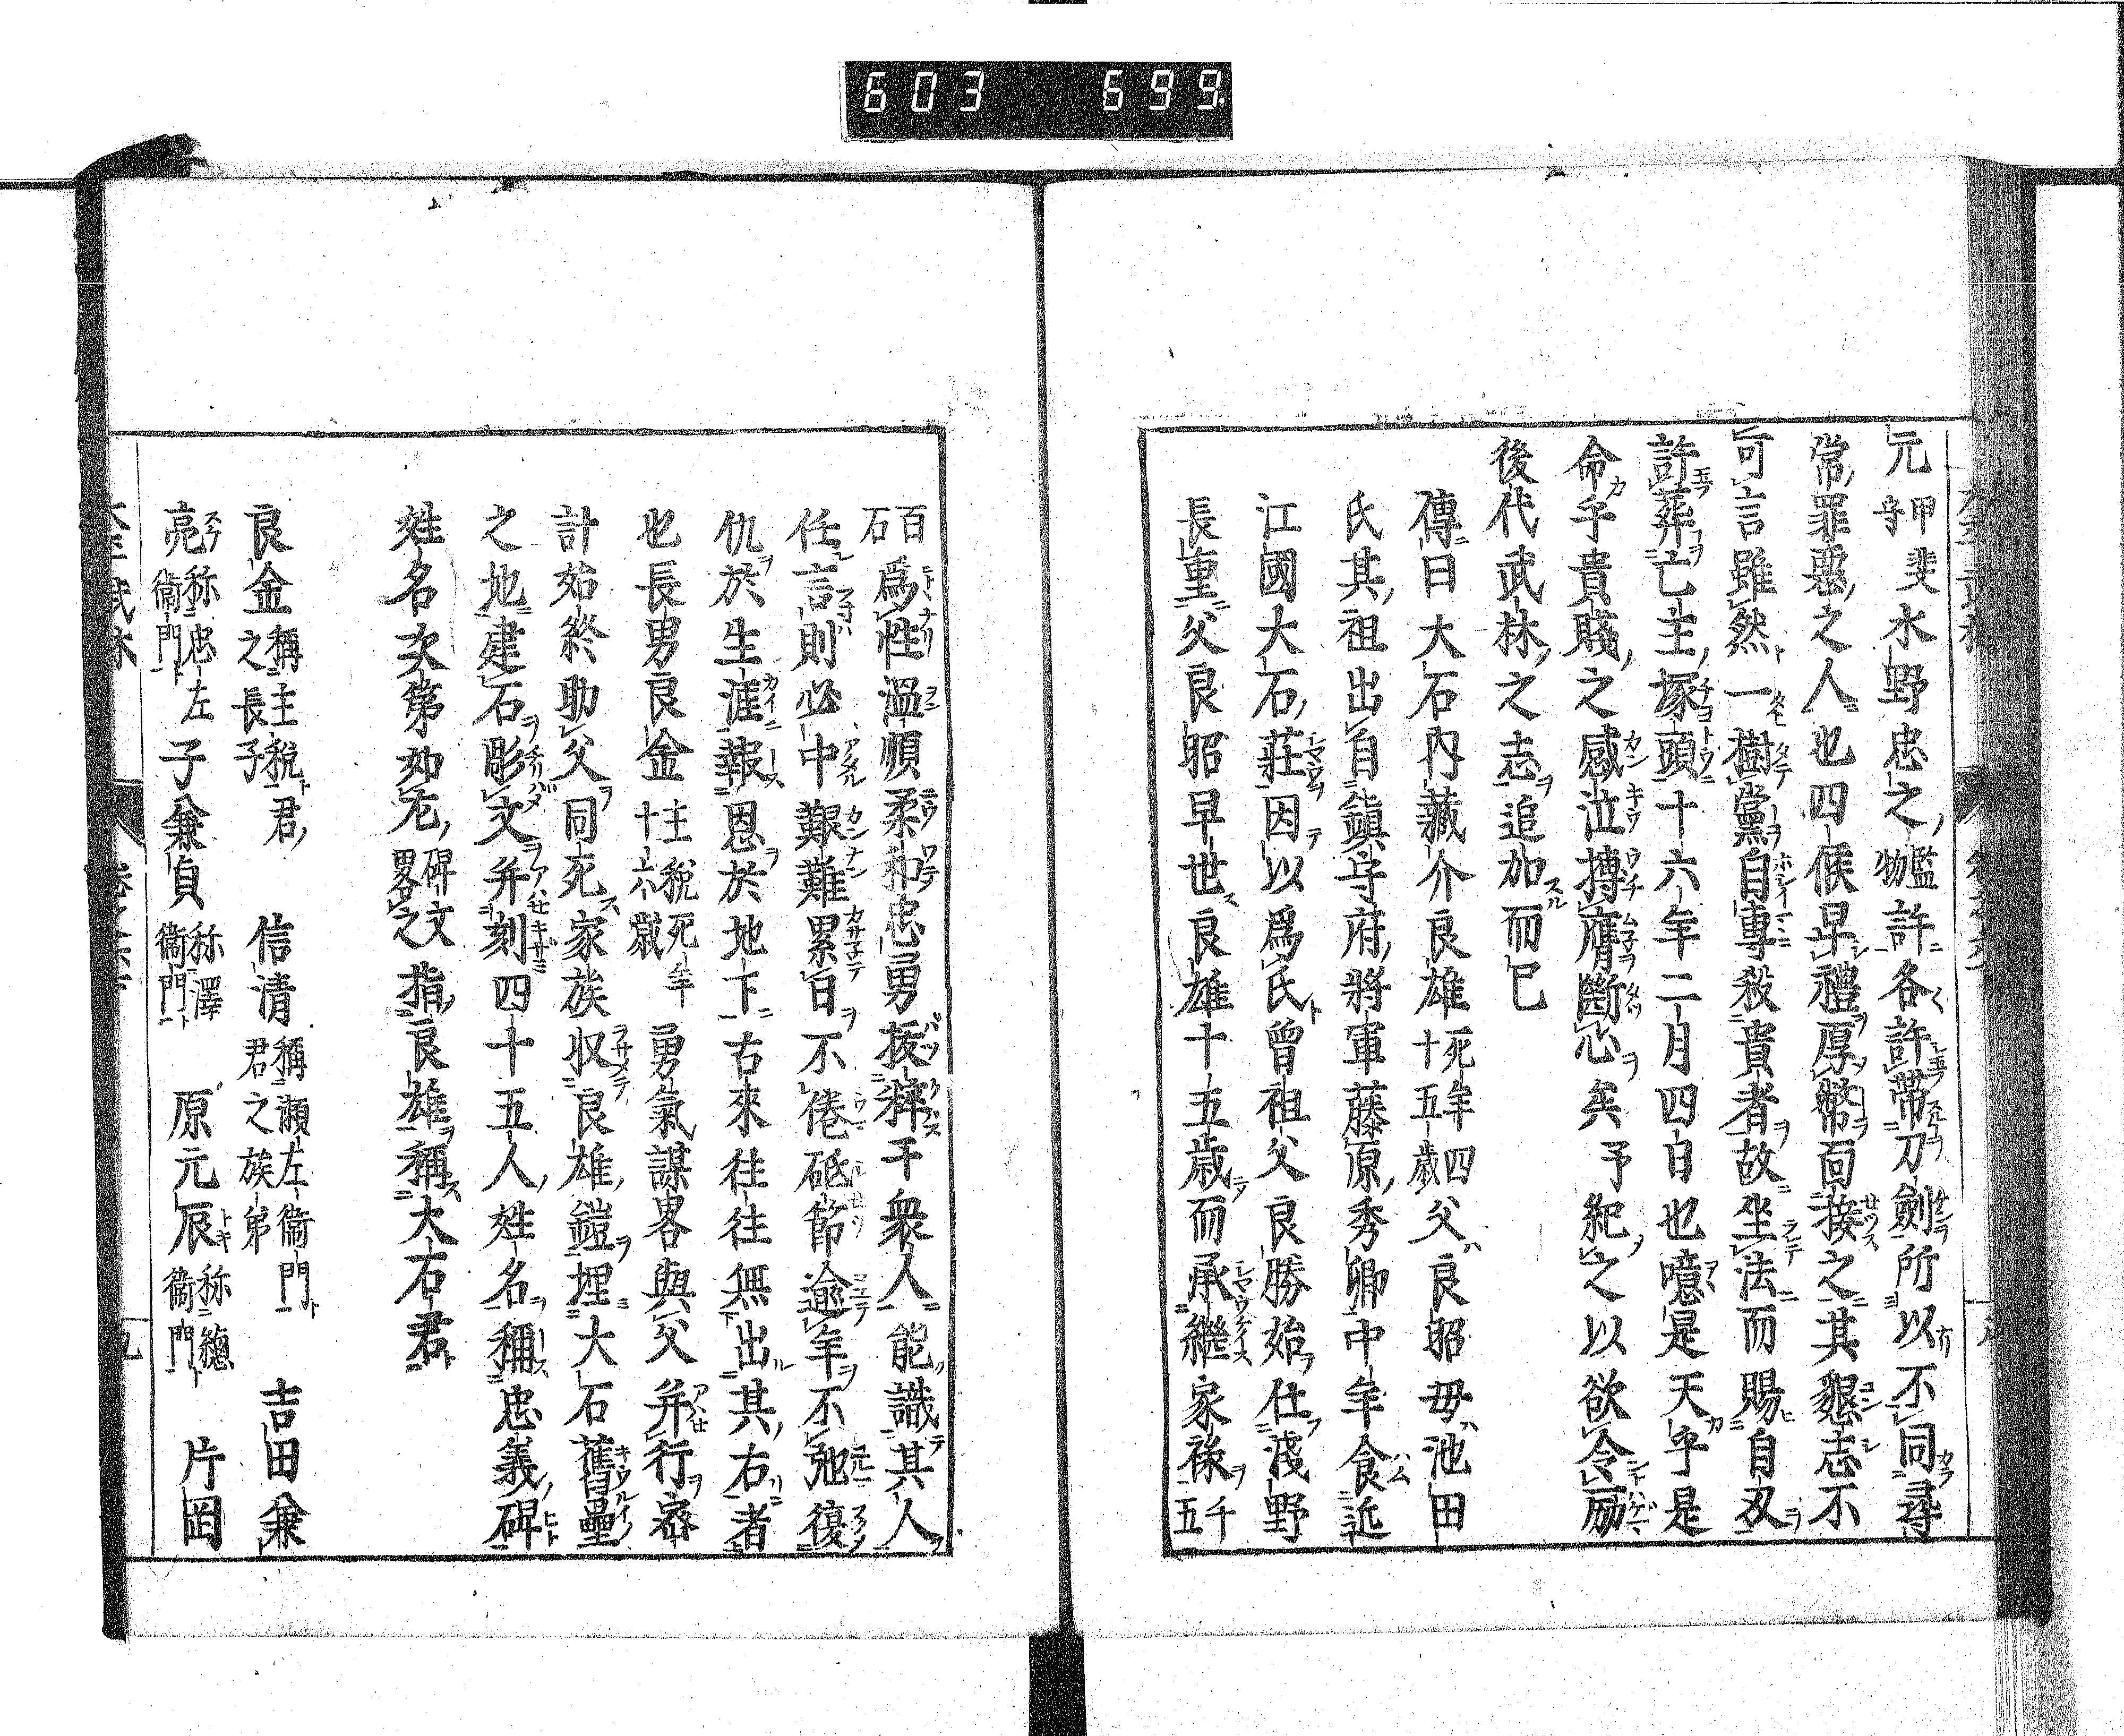 603 699.
元甲斐守水野忠之監物許各許帶刀劍所以不同尋
常罪惡之人也四候早禮厚幣面接之其懇志不
可言雖然一樹黨自專殺貴者故坐法而賜自刄
許葬亡主塚頭十六年二月四日也噫是天乎是
命乎貴賤之感泣摶膺斷心矣予紀之以欲令励
後代武林之志追加而已
傳曰大石内藏介良雄死年四十五歲父良昭毋池田
氏其祖出自鎮守府將軍藤原秀卿中年食近
江國大石莊因以爲氏曾祖父良勝始仕淺野
長重父良昭早世良雄十五歲而承繼家祿千五
百石爲性溫順柔和忠勇拔稡干衆人能識其人
任言則必中艱難累日不倦砥節逾年不弛復
仇於生涯報恩於地下古來往往無出其右者
也長男良金主稅死年十六歲勇氣謀畧與父并行密
計茹終助父同死家族収良雄鎧埋大石舊壘
之地建石彫文并刻四十五人姓名稱忠義碑
姓名次第如左碑文畧之指良雄稱大石君
良金稱主稅之長子君信清稱瀬左衞門君之族弟吉田兼
亮称忠左衞門子兼貞称澤衞門原元辰称總衞門片岡
五